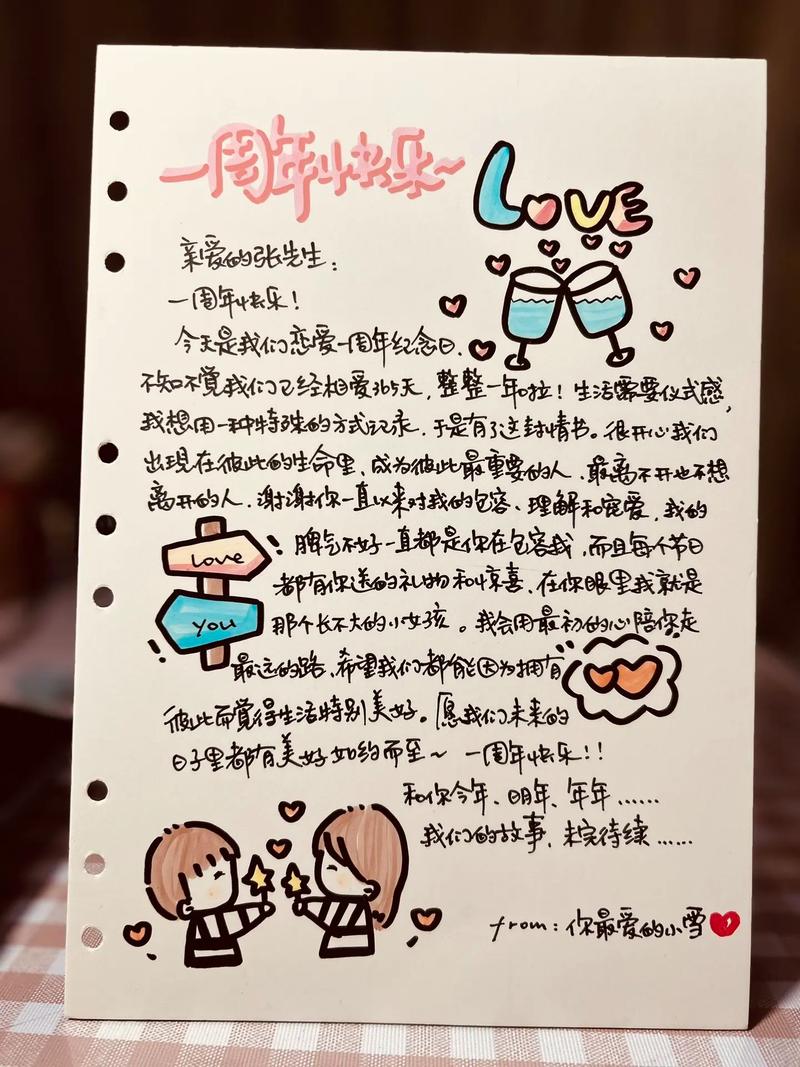 一周年快乐~
LOVE
亲爱的张先生:
一周年快乐!
今天是我们恋爱一周年纪念日.
不知不觉我们已经相爱365天,整整一年啦!生活需要仪式感,
我想用一种特殊的方式记录.于是有了这封情书。很开心我们
出现在彼此的生命里.成为彼此最重要的人.最离不开也不想
离开的人.谢谢你一直以来对我的包容、理解和宠爱.我的
脾气不好一直都是你在包容我,而且每个节日
Love
都有你送的礼物和惊喜.在你眼里我就是
you
那个长不大的小女孩。我会用最初的心陪你走
最远的路.希望我们都能因为拥有
彼此而觉得生活特别美好。愿我们未来的
日子里都有美好如约而至~ 一周年快乐!!
和你今年、明年、年年……
我们的故事.未完待续……
from:你最爱的小雪